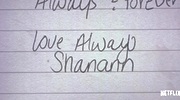 Always & forever
Love Always
Shanann
NETFLIX